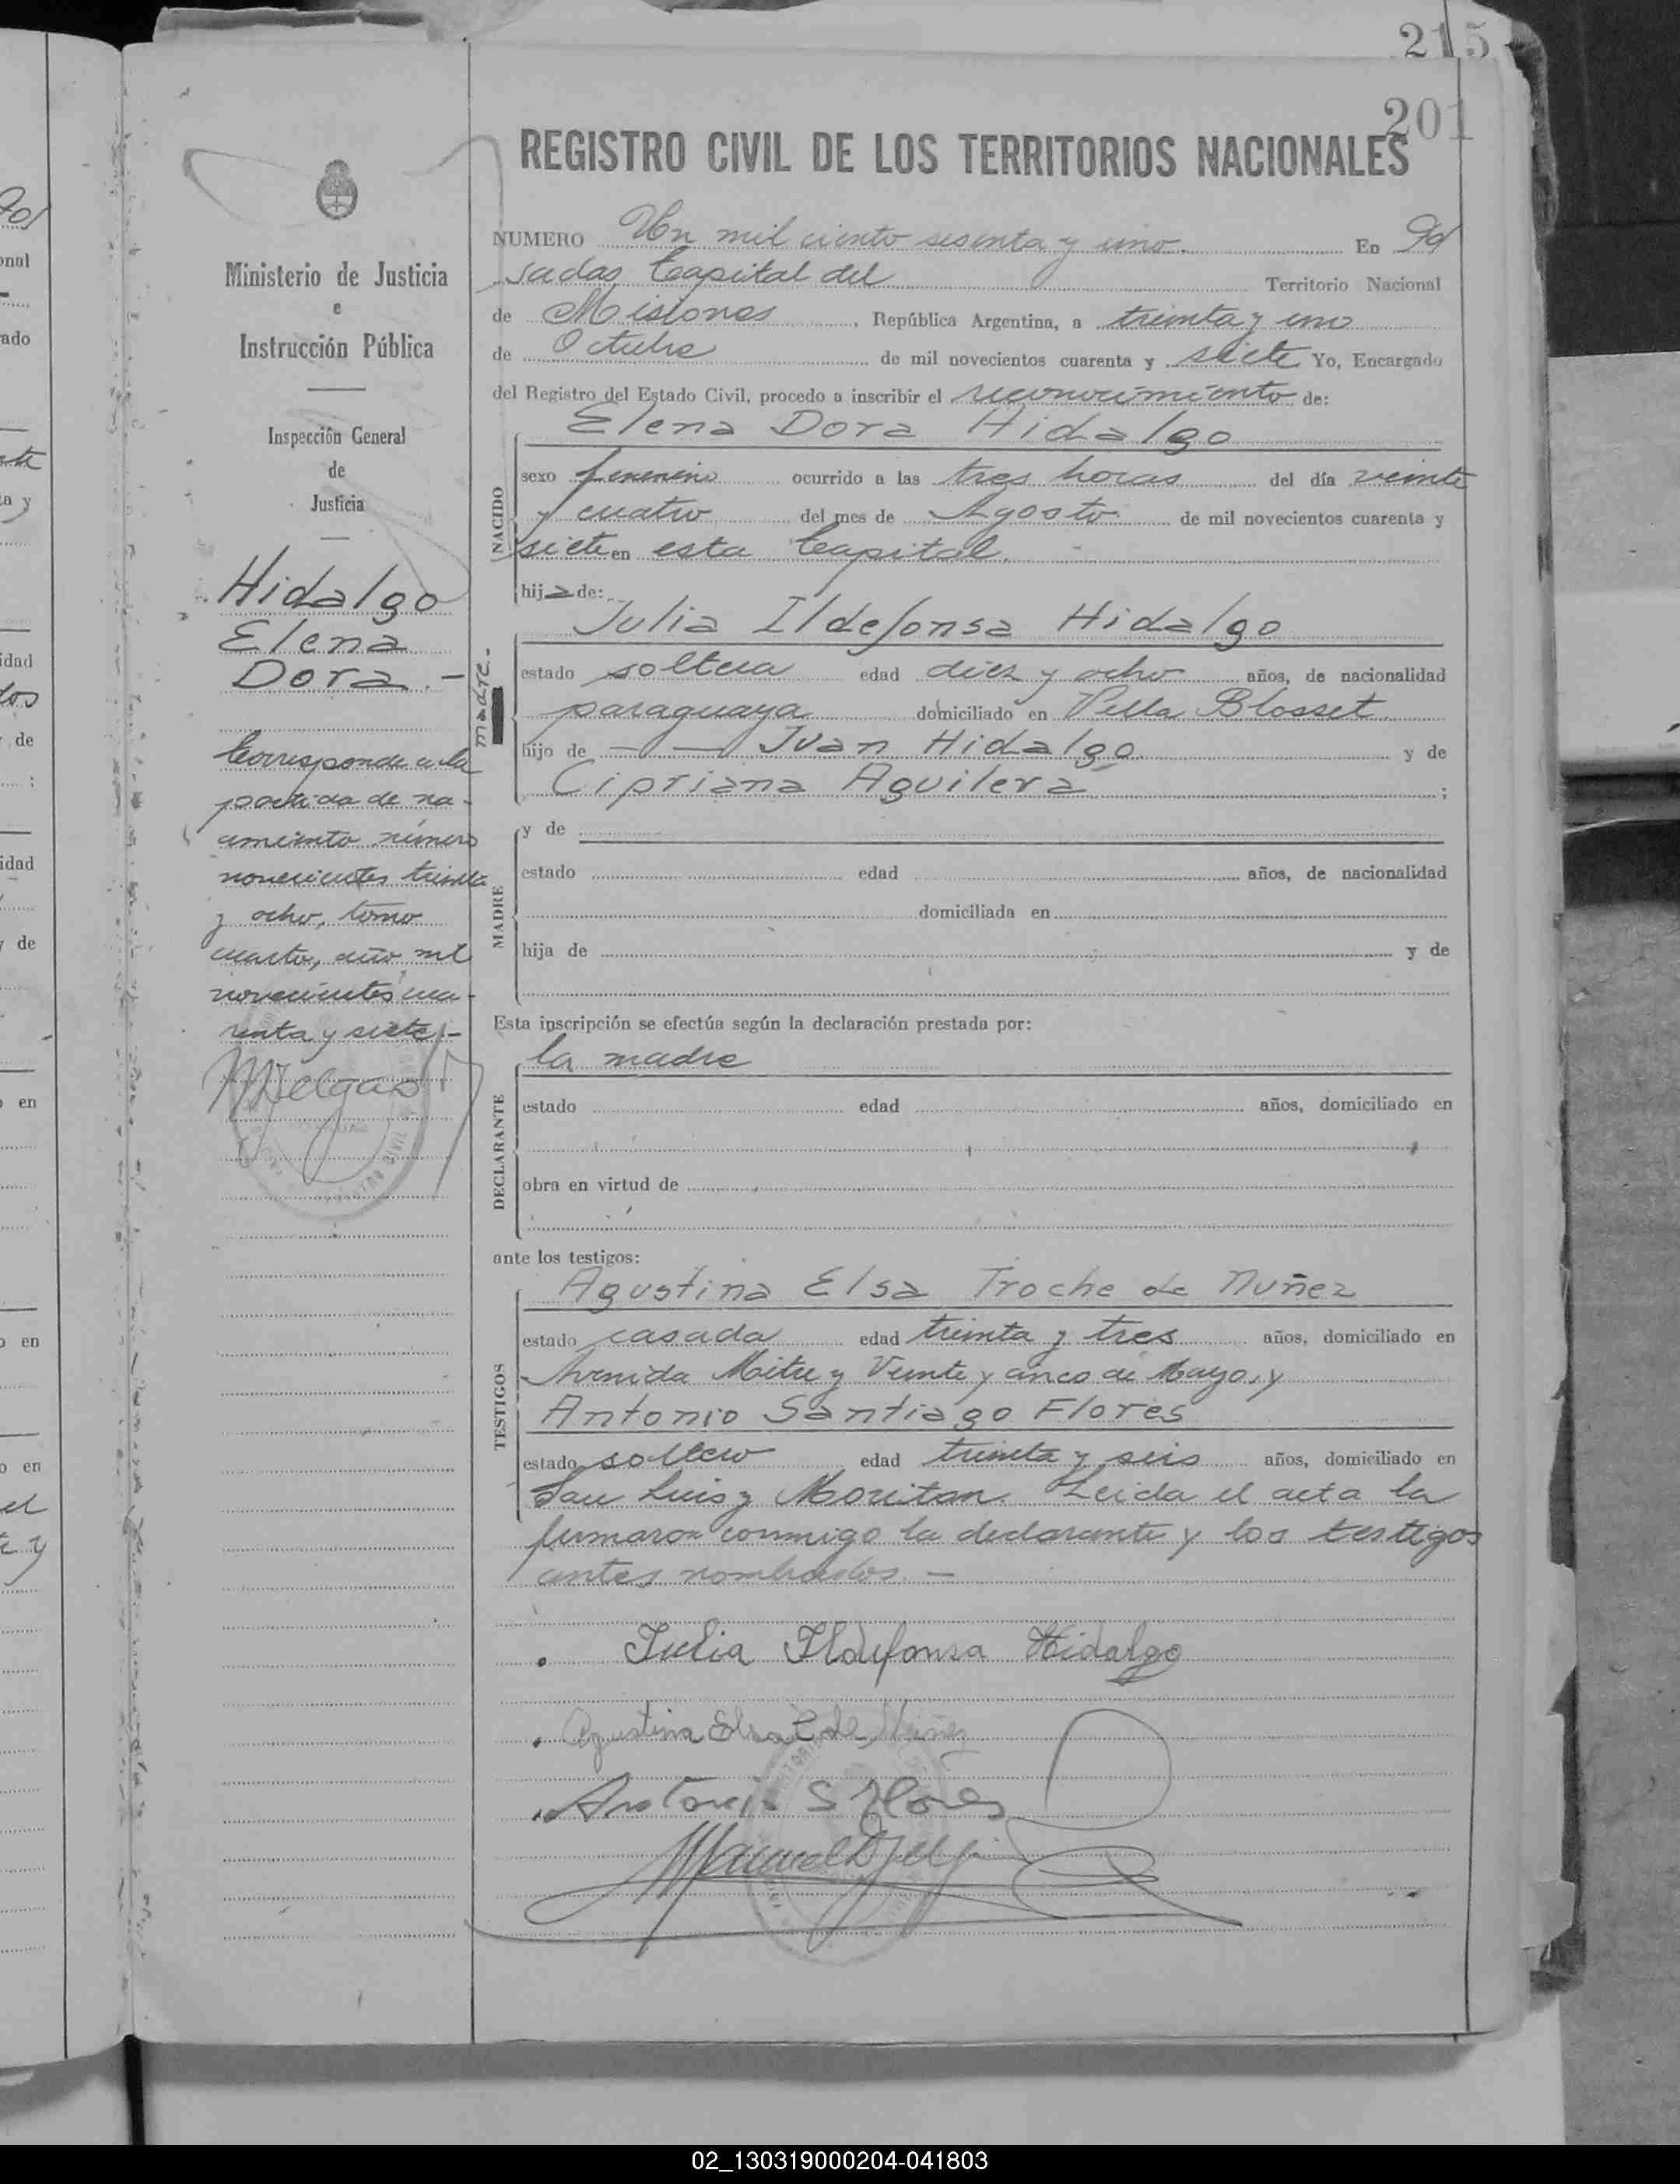 215
201
REGISTRO CIVIL DE LOS TERRITORIOS NACIONALES
Ministerio de Justicia
e
Instrucción Pública
Inspección General
de
Justicia
Hidalgo
Elena
Dora.-
Corresponde a la
partida de na-
cimiento número
novecientos treinta
y ocho, tomo
cuarto, año mil
novecientos cua-
renta y siete.-
NUMERO Un mil ciento sesenta y uno. En Po
sadas Capital del Territorio Nacional
de Misiones, República Argentina, a treinta y uno
de Octubre de mil novecientos cuarenta y siete Yo, Encargado
del Registro del Estado Civil, procedo a inscribir el reconocimiento de:
NACIDO
Elena Dora Hidalgo
sexo femenino ocurrido a las tres horas del día veinte
y cuatro del mes de Agosto de mil novecientos cuarenta y
siete en esta Capital.
hija de:
madre.-
Julia Ildefonsa Hidalgo
estado soltera edad diez y ocho años, de nacionalidad
paraguaya domiciliado en Villa Blosset
hijo de — — Juan Hidalgo y de
Cipriana Aguilera ;
MADRE
y de
estado edad años, de nacionalidad
domiciliada en
hija de y de
Esta inscripción se efectúa según la declaración prestada por:
DECLARANTE
la madre
estado edad años, domiciliado en
obra en virtud de
ante los testigos:
TESTIGOS
Agustina Elsa Troche de Nuñez
estado casada edad treinta y tres años, domiciliado en
Avenida Mitre y Veinte y cinco de Mayo, y
Antonio Santiago Flores
estado soltero edad treinta y seis años, domiciliado en
San Luis y Moritan. Leida el acta la
firmaron conmigo la declarante y los testigos
antes nombrados.—
Julia Ildefonsa Hidalgo
Agustina Elsa T. de Nuñez
Antonio S Flores
02_130319000204-041803